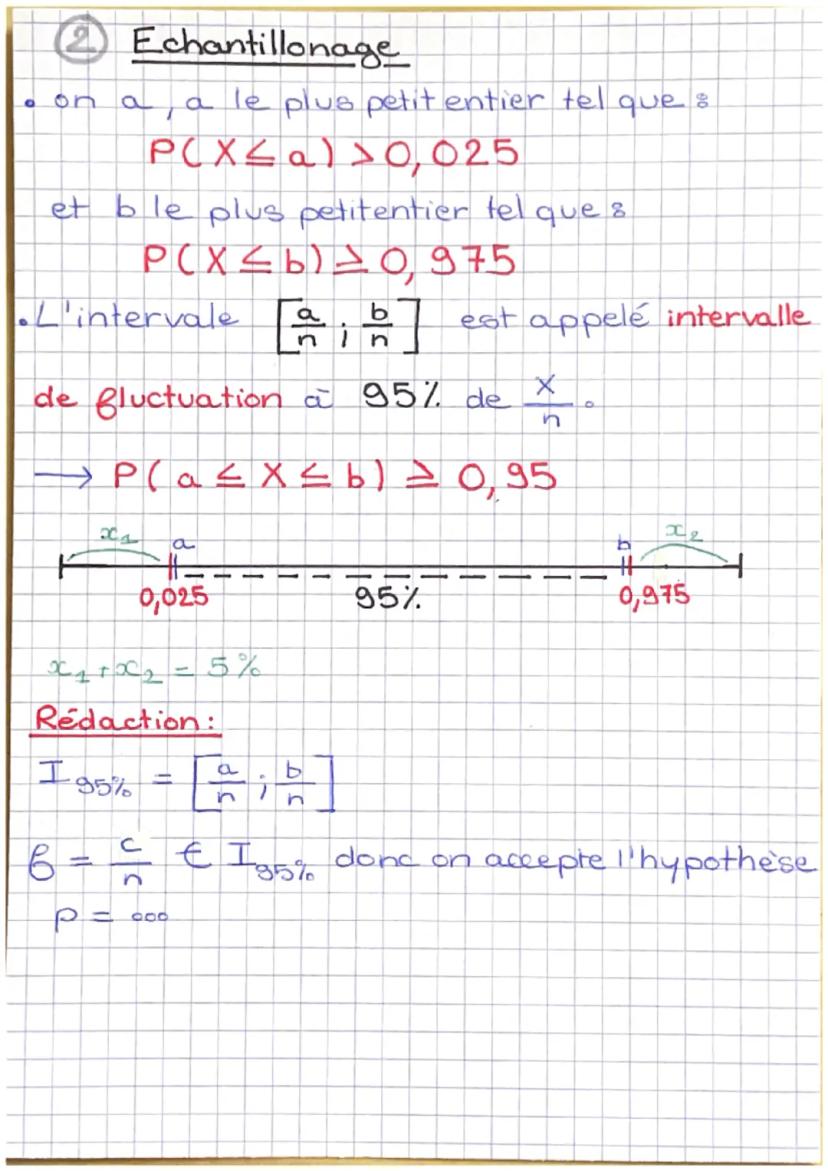 ② Echantillonage
• on a, a le plus petit entier tel que :
P(X ≤ a) > 0,025
et b le plus petit entier tel que :
P(X ≤ b) ≥ 0,975
• L'intervale [a/n ; b/n] est appelé intervalle
de fluctuation à 95% de X/n.
→ P(a ≤ X ≤ b) ≥ 0,95
x₁ a b x₂
0,025 95% 0,975
x₁ + x₂ = 5%
Rédaction :
I 95% = [a/n ; b/n]
f = c/n ∈ I 95% donc on accepte l'hypothèse
p = ...